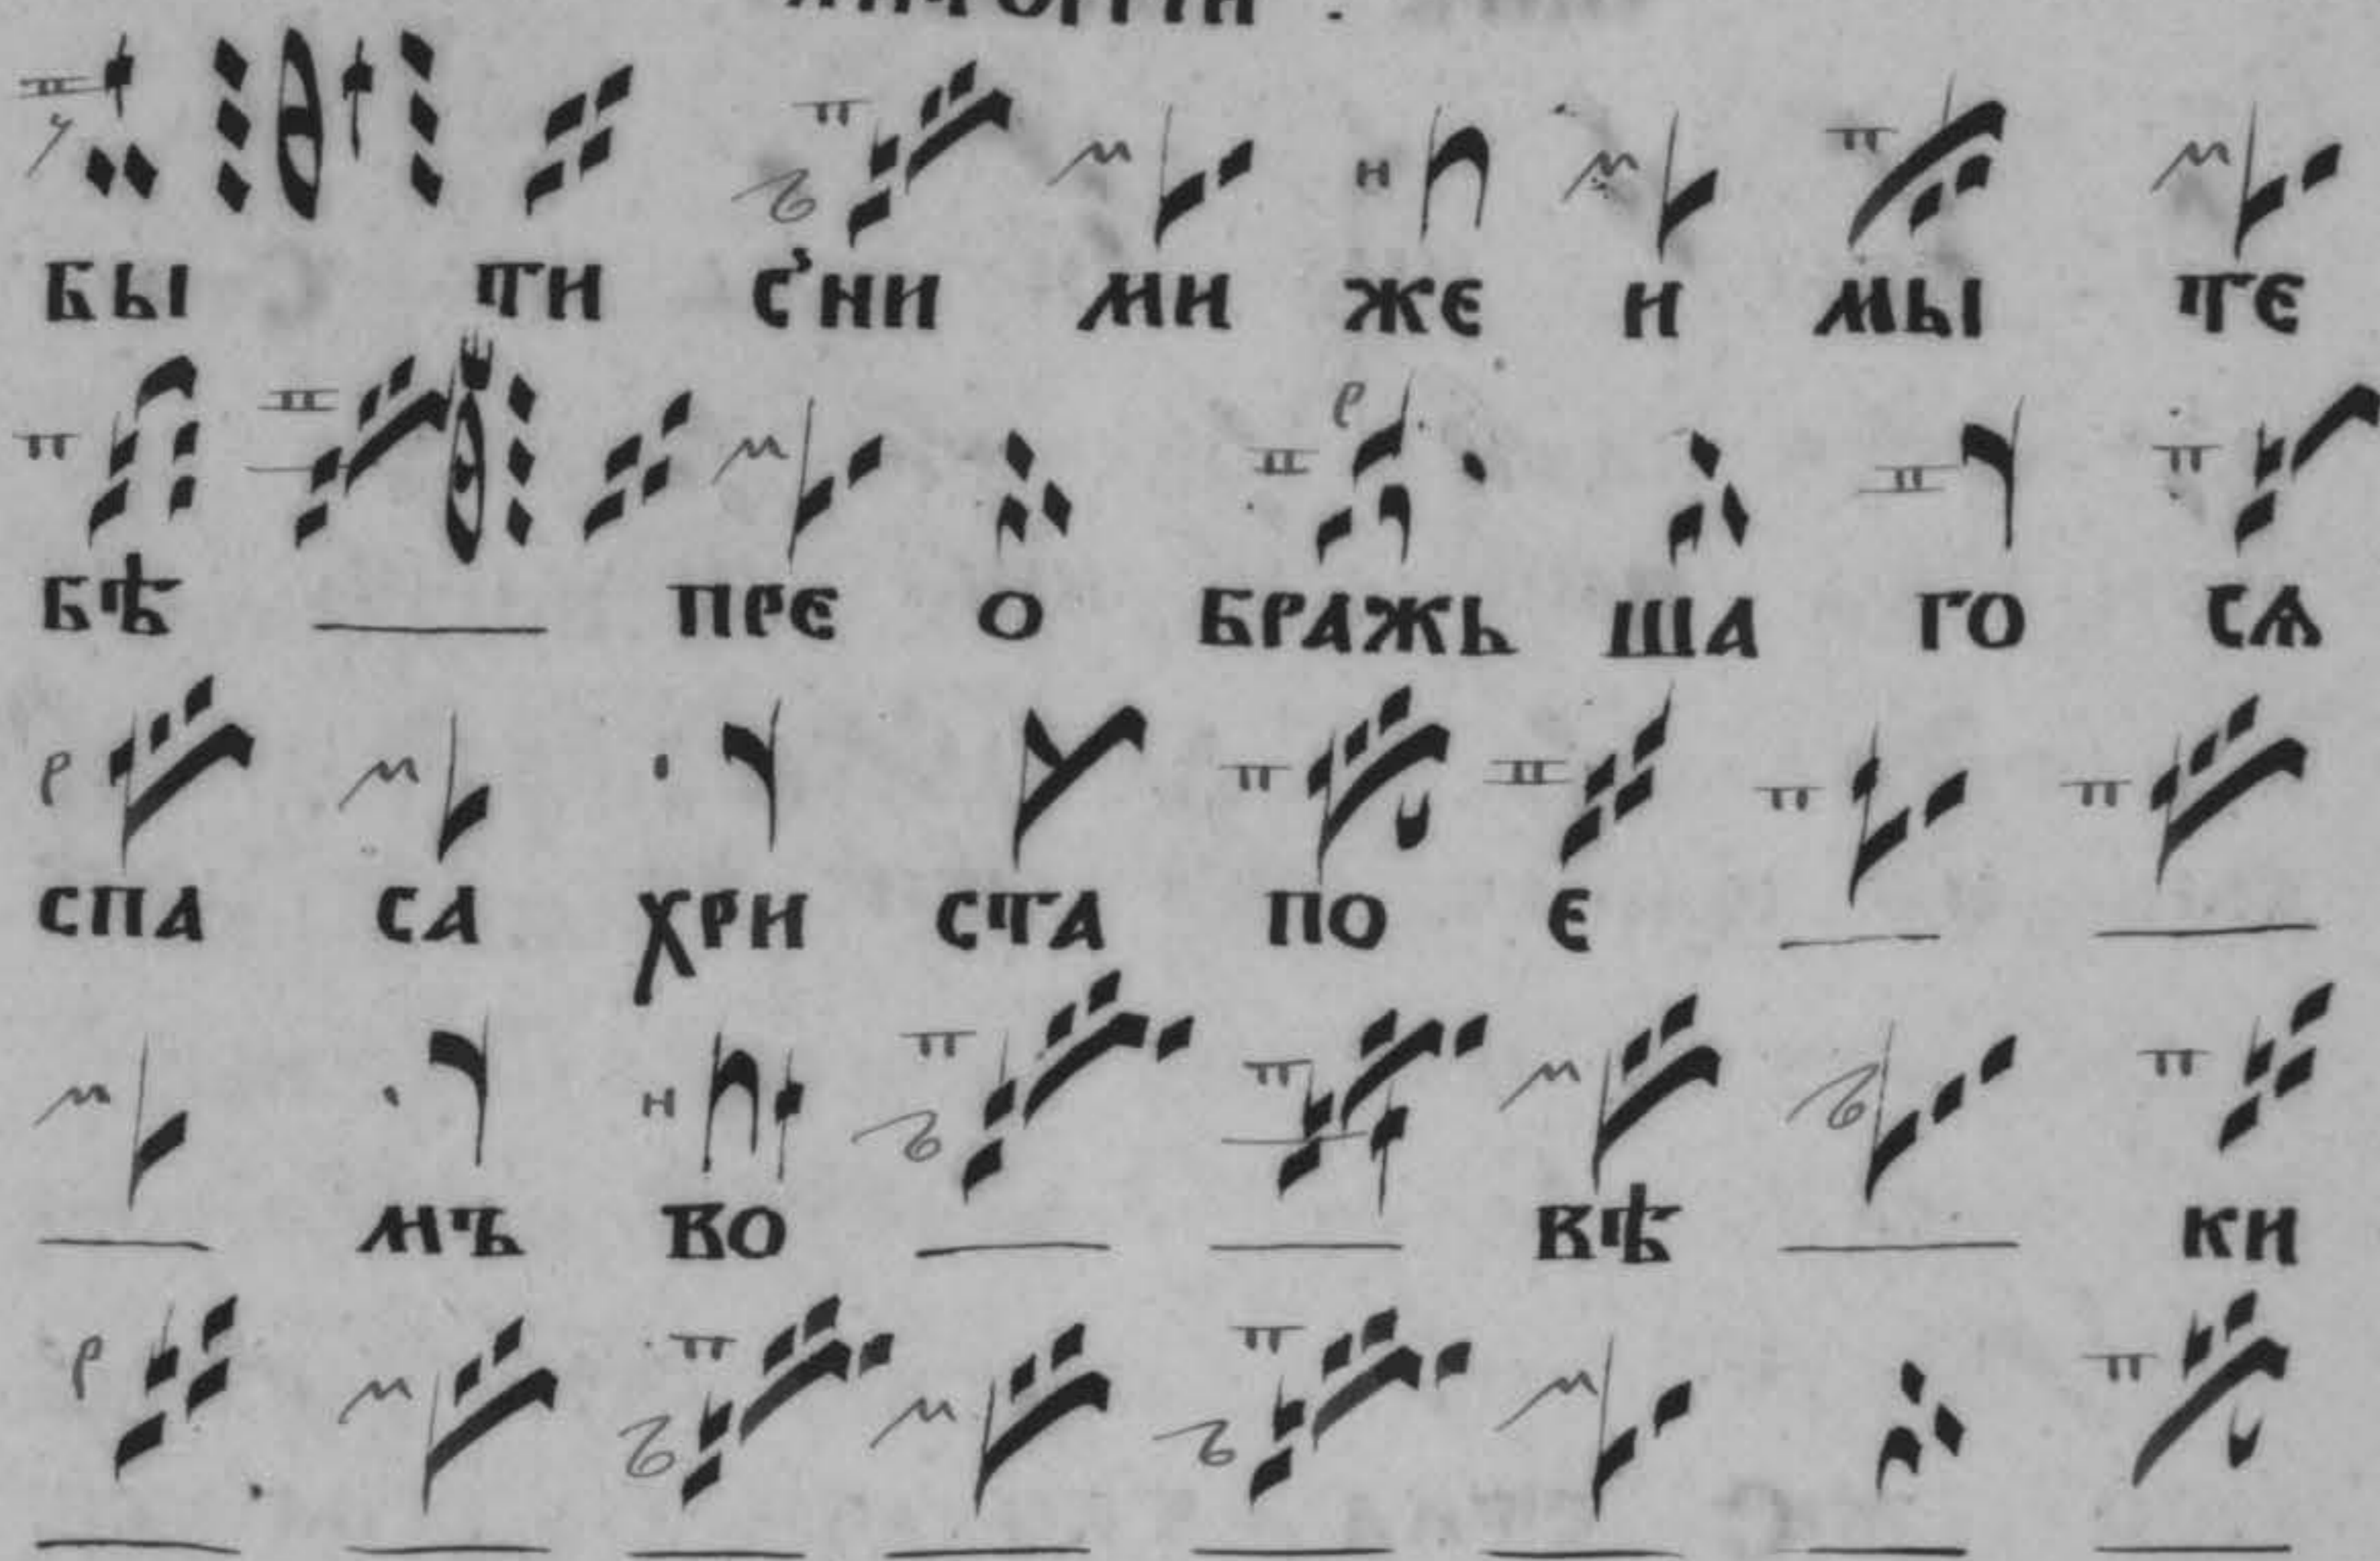 БЫ ТИ С'НИ МИ ЖЕ И МЫ ТЕ
БѢ ПРЕ О БРАЖЬ ША ГО СѦ
СПА СА ХРИ СТА ПО Е
МЪ ВО ВѢ КИ